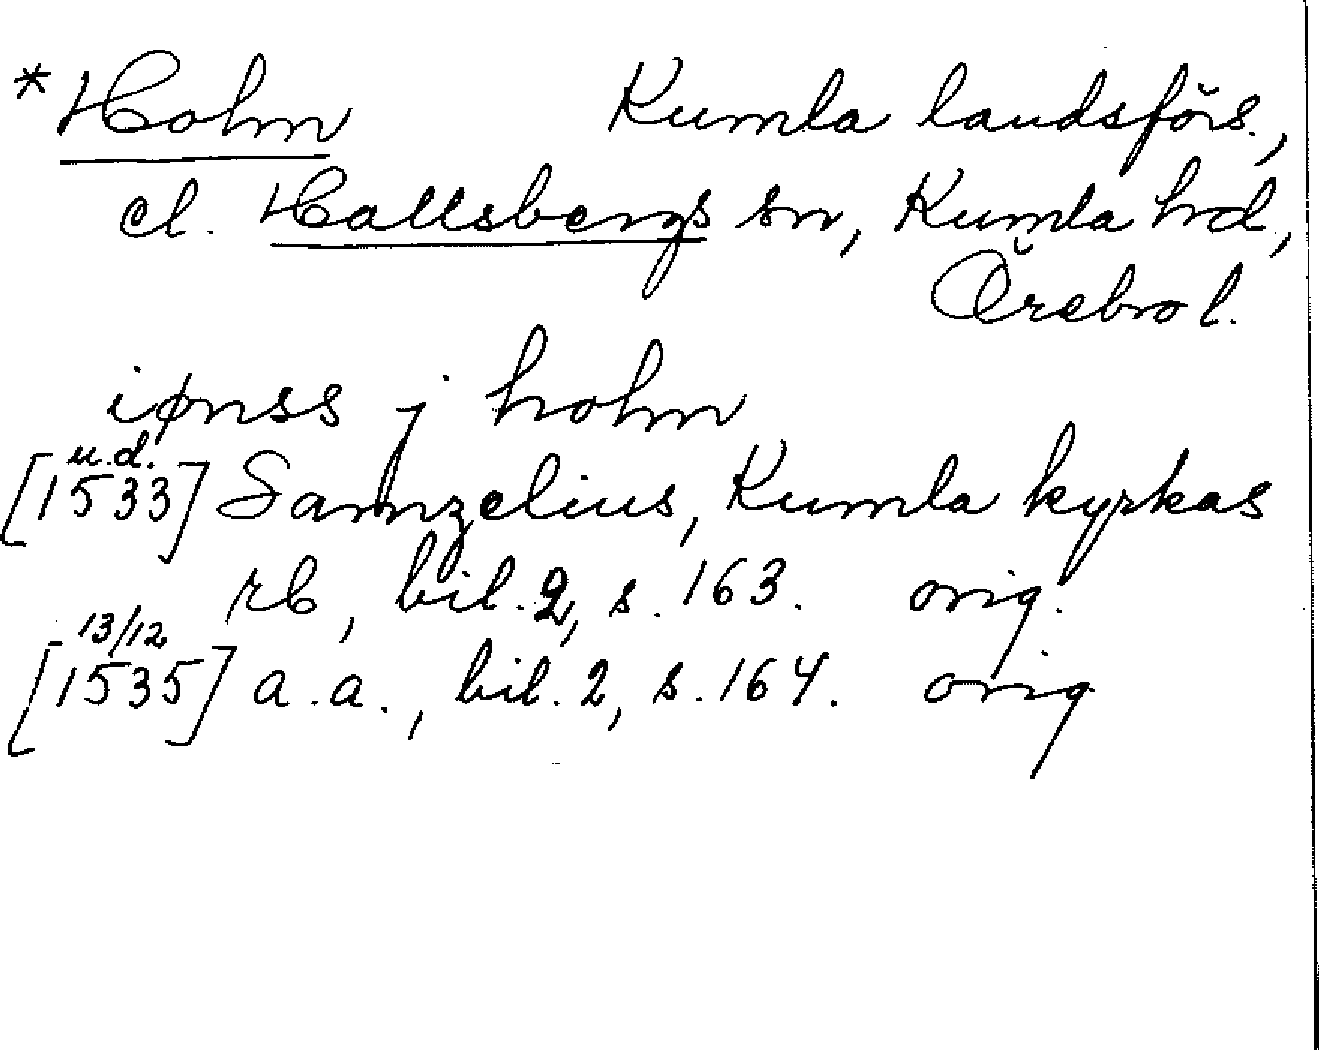 *Holm Kumla landsförs.,
el. Hallsbergs sn, Kumla hd,
Örebro l.
iønss j holm
u.d.
[1533] Samzelius, Kumla kyrkas
rb, bil. 2, s. 163. orig.
13/12
[1535] a.a., bil. 2, s. 164. orig